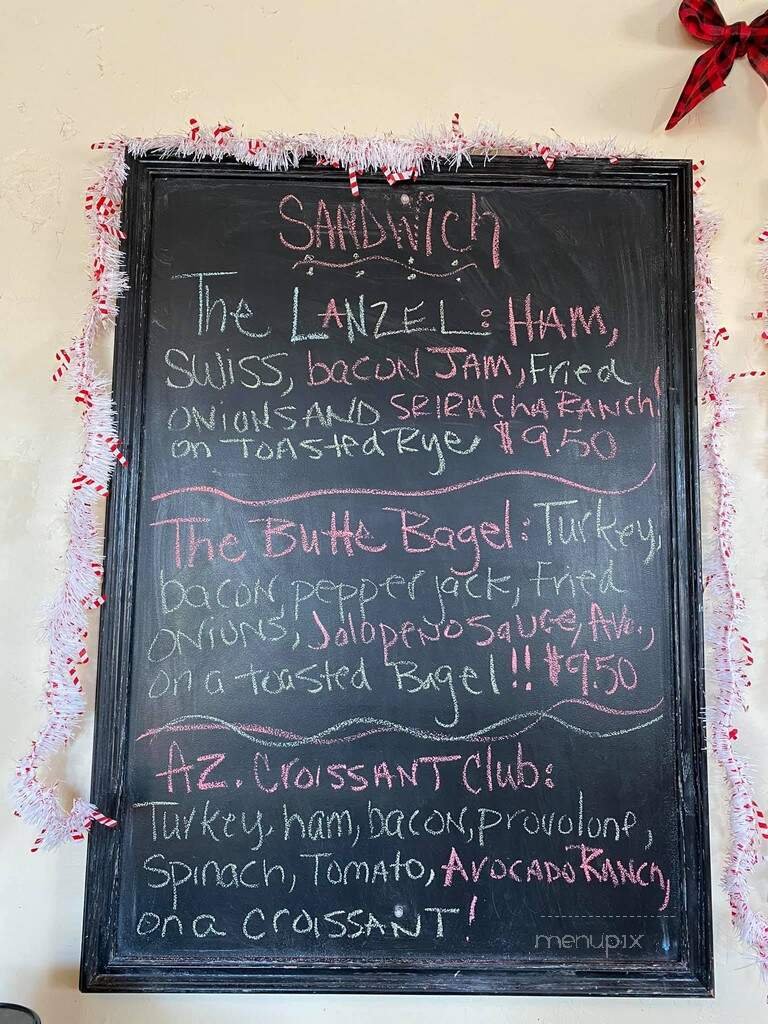 SANDWich
The LANZEL: HAM,
Swiss, bacon JAM, Fried
ONIONS AND SRIRACHA RANCH!
on TOASTED Rye $9.50
The Butte Bagel: Turkey,
bacon, pepper jack, Fried
ONIONS, Jalopeño sauce, Avo.,
on a toasted Bagel!! $9.50
AZ. CROISSANT Club:
Turkey, ham, bacon, provolone,
Spinach, Tomato, AVOCADO RANCH,
on a CROISSANT!
menupix